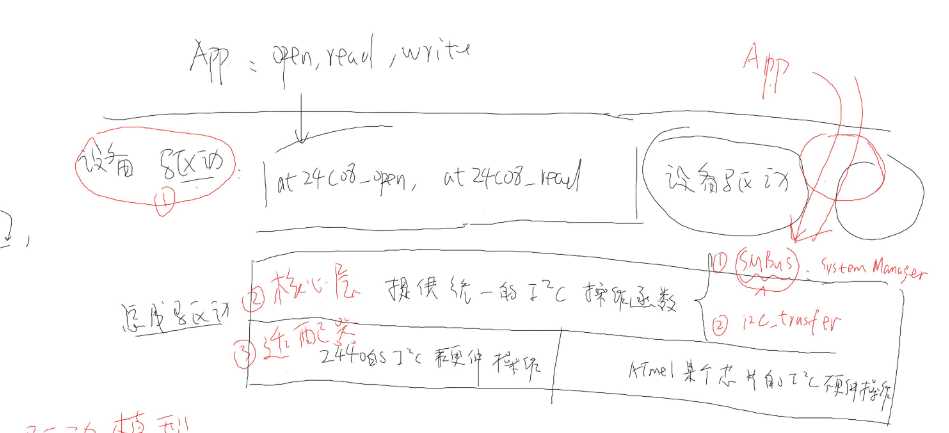 App : open, read, write
App
设备驱动:
①
at24c08_open, at24c08_read
设备驱动
总线驱动
② 核心层
提供统一的I²C操作函数
① SMBus. System Manager
② i2c_trasfer
③ 适配器
2440的I²C硬件操作
ATmel某个芯片的I²C硬件操作
模型